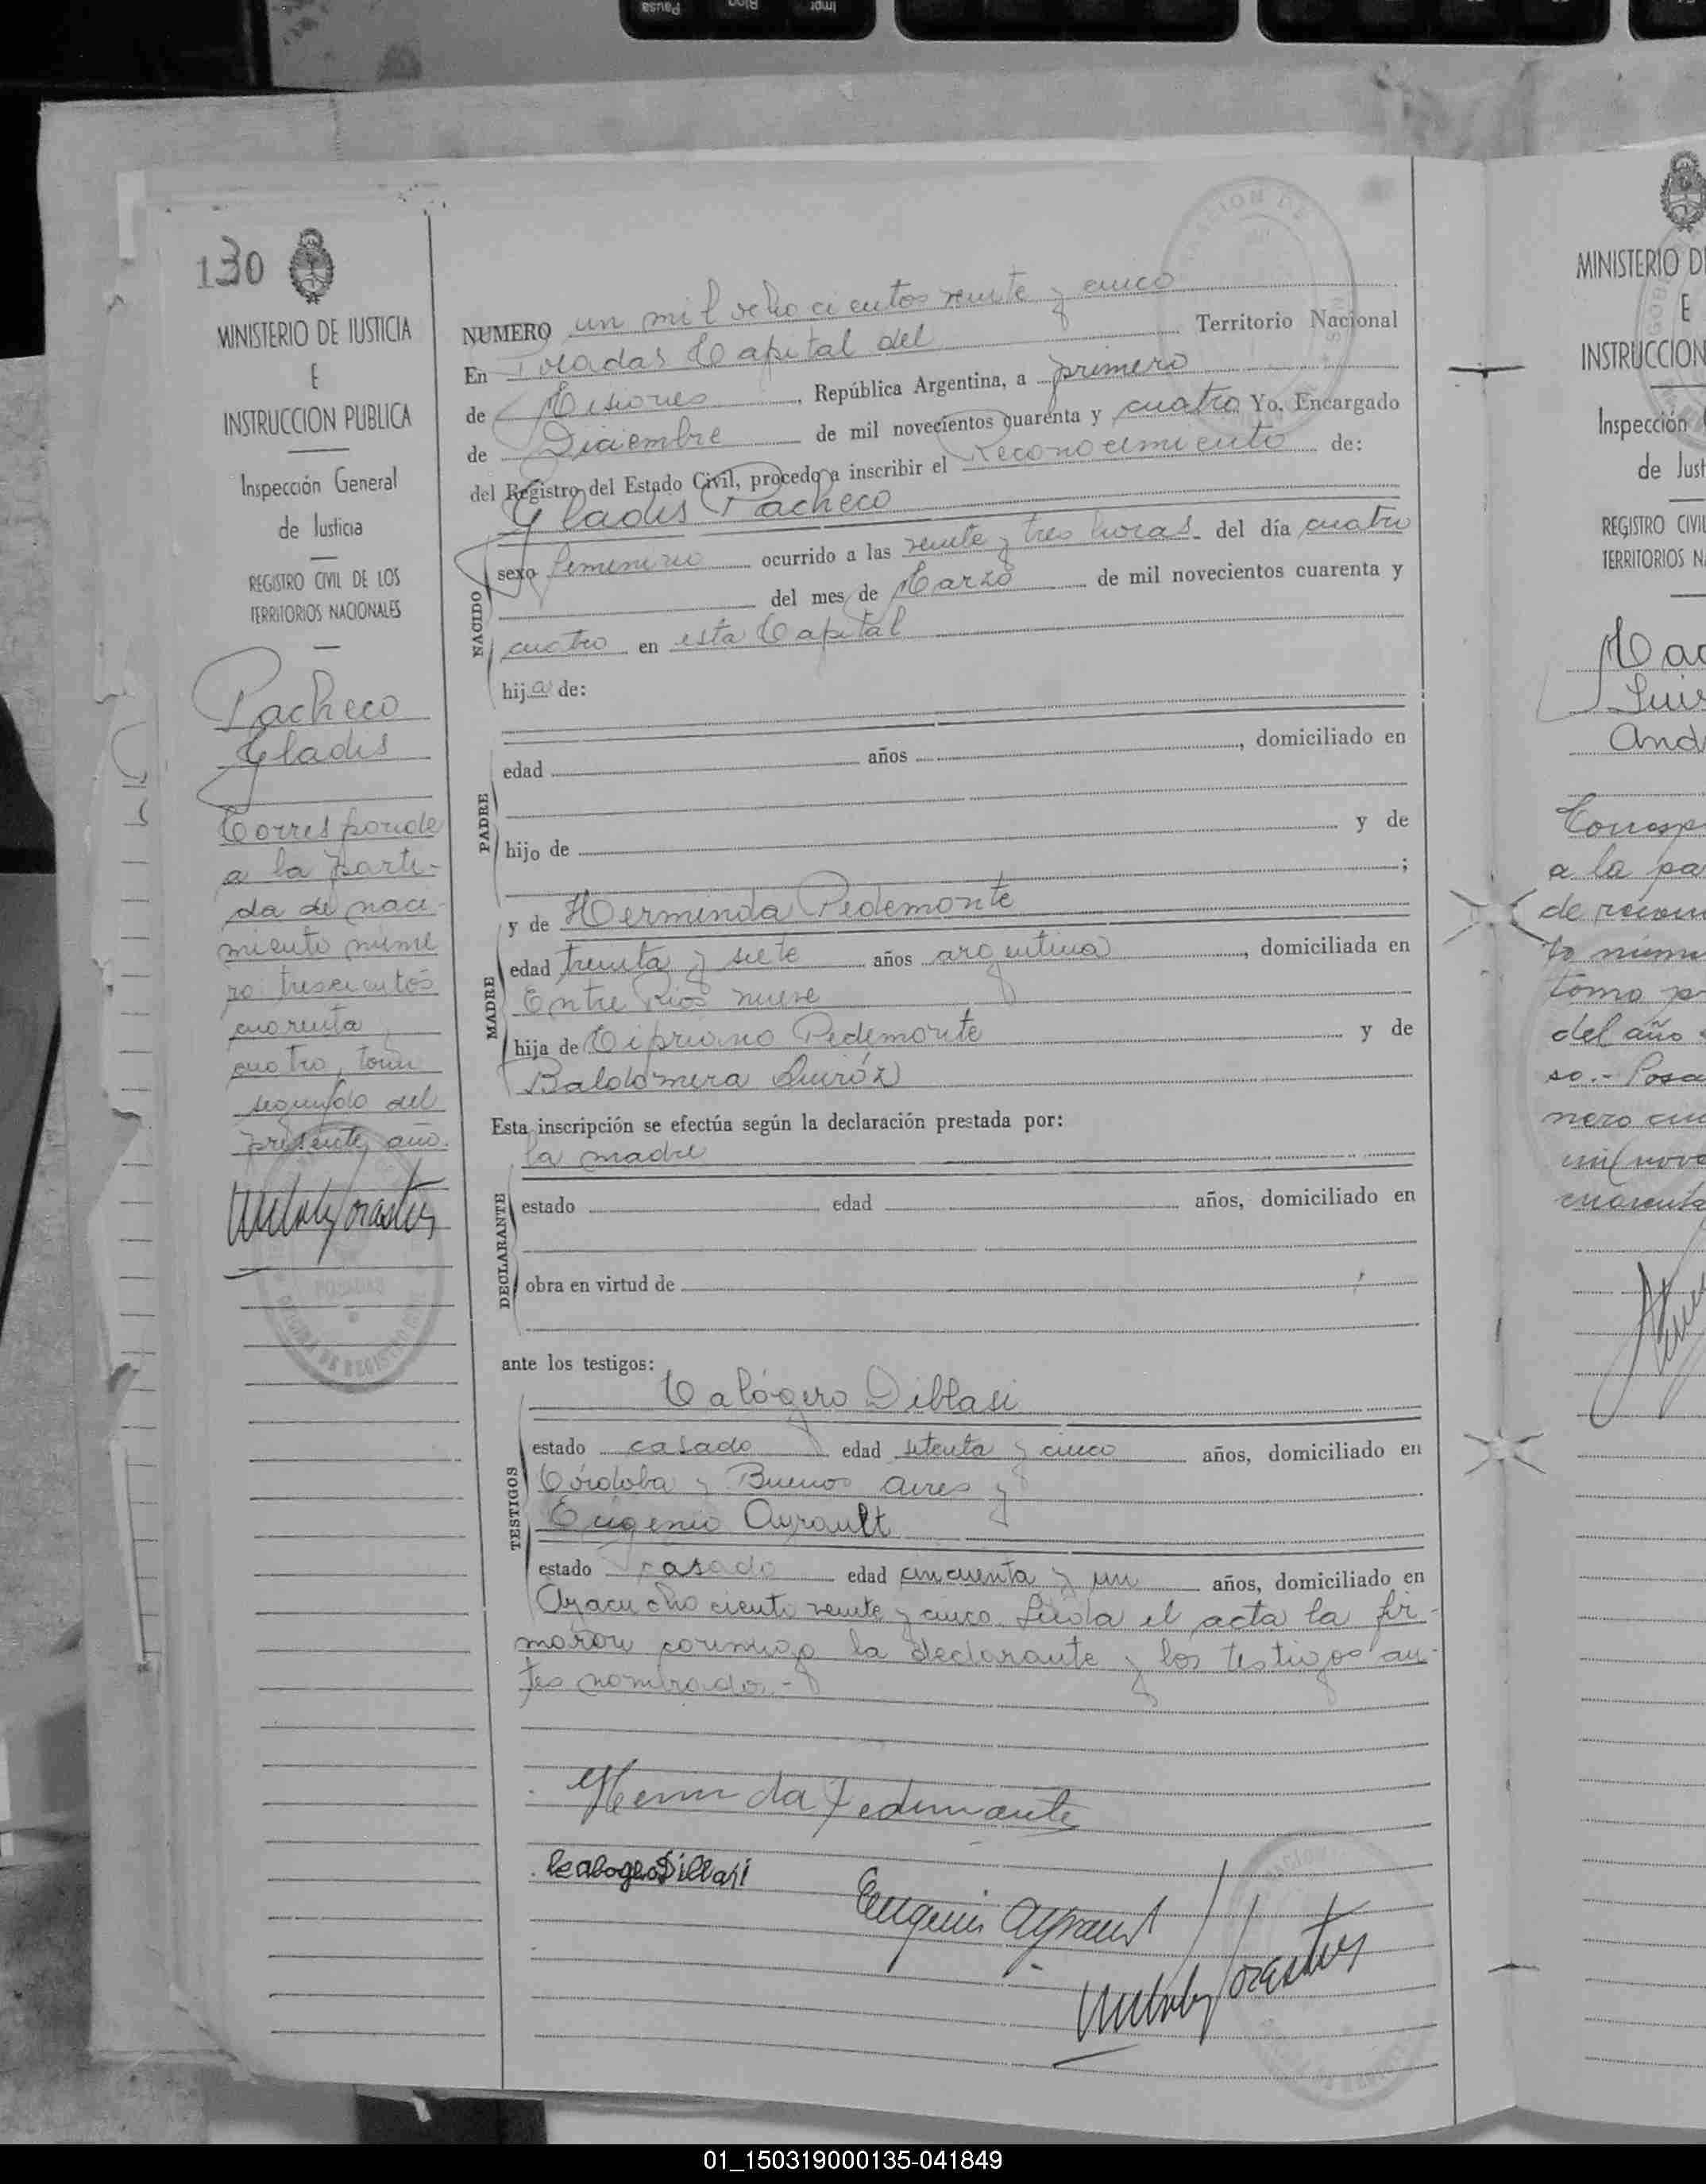 Pausa
130
MINISTERIO DE JUSTICIA
E
INSTRUCCION PUBLICA
Inspección General
de Justicia
REGISTRO CIVIL DE LOS
TERRITORIOS NACIONALES
Pacheco
Gladis
Corresponde
a la parti-
da de naci-
miento núme
ro trescientos
cuarenta y
cuatro, tomo
segundo del
presente año.
POSADAS
NUMERO un mil ochocientos veinte y cinco
En Posadas Capital del Territorio Nacional
de Misiones, República Argentina, a primero
de Diciembre de mil novecientos cuarenta y cuatro Yo, Encargado
del Registro del Estado Civil, procedo a inscribir el Reconocimiento de:
Gladis Pacheco
NACIDO
sexo femenino ocurrido a las veinte y tres horas. del día cuatro
del mes de Marzo de mil novecientos cuarenta y
cuatro en esta Capital
hija de:
PADRE
edad años , domiciliado en
hijo de y de
;
MADRE
y de Herminda Pedemonte
edad treinta y siete años argentina, domiciliada en
Entre Rios nueve
hija de Cipriano Pedemonte y de
Baldomera Quiróz
Esta inscripción se efectúa según la declaración prestada por:
la madre
DECLARANTE
estado edad años, domiciliado en
obra en virtud de
ante los testigos:
TESTIGOS
Calógero Diblasi
estado casado edad setenta y cinco años, domiciliado en
Córdoba y Buenos Aires y
Eugenio Ayrault
estado casado edad cincuenta y un años, domiciliado en
Ayacucho ciento veinte y cinco. Leida el acta la fir-
maron conmigo la declarante y los testigos an-
tes nombrados.-
Herminda Pedemonte
Calogero Dillasi
Eugenio Ayrault
MINISTERIO D
E
INSTRUCCION
Inspección
de Just
REGISTRO CIVIL
TERRITORIOS NA
Luis
And
Corresp
a la pa
de recon
to núme
tomo p
del año
so.- Posa
nero cua
mil nove
cuarenta
01_150319000135-041849